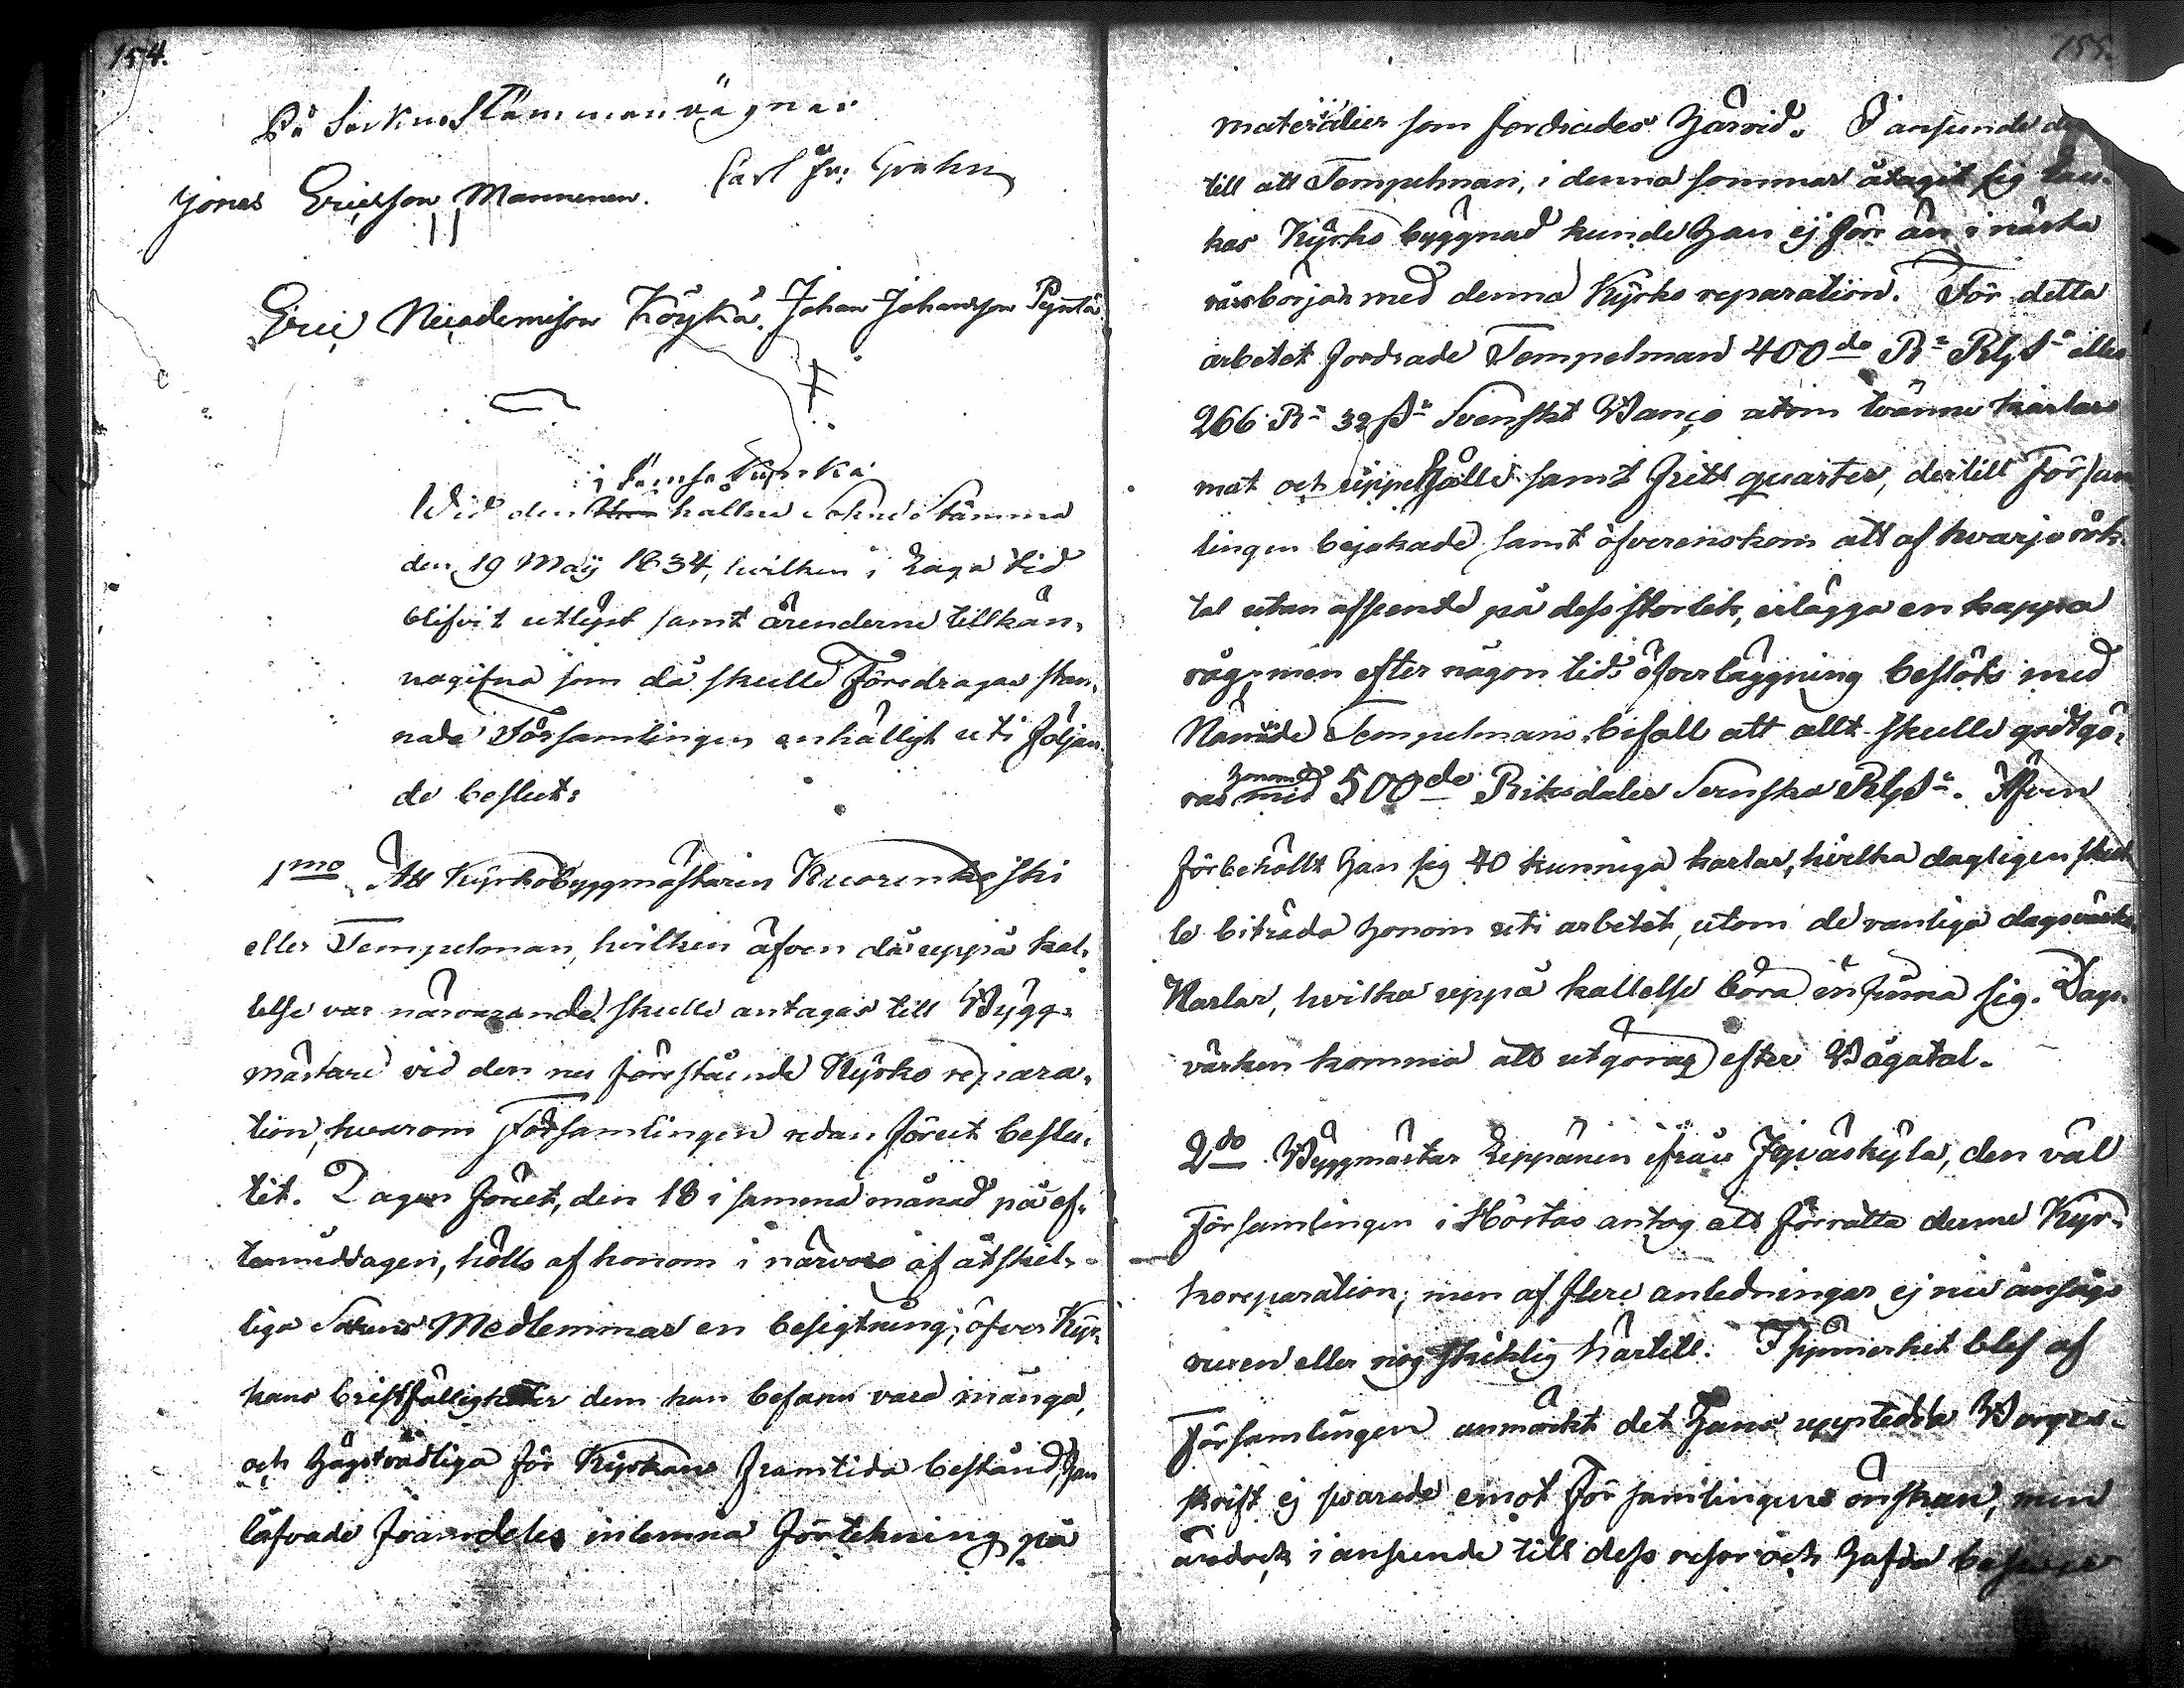 154.
På Sockne Stämmans vägnar
Carl Fr: Grahn
Jonas Ericsson Mannenen.
Eric Nicodemison Köykä. Johan Johansson Pyntä
i Jämsä Kyrka
Wid den hållne Sokne Stämma
den 19 Maÿ 1834, hvilken i Laga tid
blifvit utlyst samt ärenderne tillkän,
nagifna som då skulle Föredragas stan,
nade Församlingen enhälligt uti följan,
de beslut:
1mo Att Kyrkobyggmästaren Kuorenkoski
eller Tempelman, hvilken äfven då uppå kal,
lelse var närvarande skulle antagas till Bygg,
mästare vid den nu förestående Kyrko repara,
tion, hvarom Församlingen redan förut beslu,
tit. Dagen förut, den 18 i samma månad på ef,
termiddagen, hölls af honom i närvaro af åtskil,
liga Sokne Medlemmar en besigtning, öfver Kyr,
kans bristfälligheter dem han befann vara många,
och högstvådliga för Kyrkans framtida bestånd, han
låfvade framdeles inlemna förtekning på
155.
materialier som fordrades härvid. I anseende
till att Tempelman, i denna sommar åtagit sig Lau,
kas Kyrko byggnad kunde han ej förr än i nästa
vår börja med denna Kyrko reparation. För detta
arbetet fordrade Tempelman 400de R: RgS: eller
266 R: 32 s: Svenskt Banco utom tvänne karlars
mat och uppehälle samt fritt quarter, dertill Försam
lingen bejakade samt öfverenskom att af hvarje rök,
tal utan afseende på dess storlek, erlägga en kappa
råg, men efter någon tids öfverläggning beslöts med
Nämde Tempelmans bifall att allt skulle godtgö,
ras honom med 500de Riksdaler Svenska RgS:. Äfven
förbehöllt han sig 40 kunniga karlar, hvilka dagligen skul
le biträda honom uti arbetet, utom de vanliga dagsvärks
Karlar, hvilka uppå kallelse böra infinna sig. Dags,
värken komma att utgöras efter Bågatal.
2do Byggmästar Leppänen ifrån Jyväskylä, den väl
Församlingen i Höstas antog att förrätta denne Kyr,
koreparation, men af flere anledningar ej nu ansågs
vuxen eller nog skiklig härtill. I synnerhet blef af
Församlingen anmärkt det hans uppteedda Borges,
skrift ej svarade emot Församlingens önskan, men
ändock i anseende till dess resor och hafda